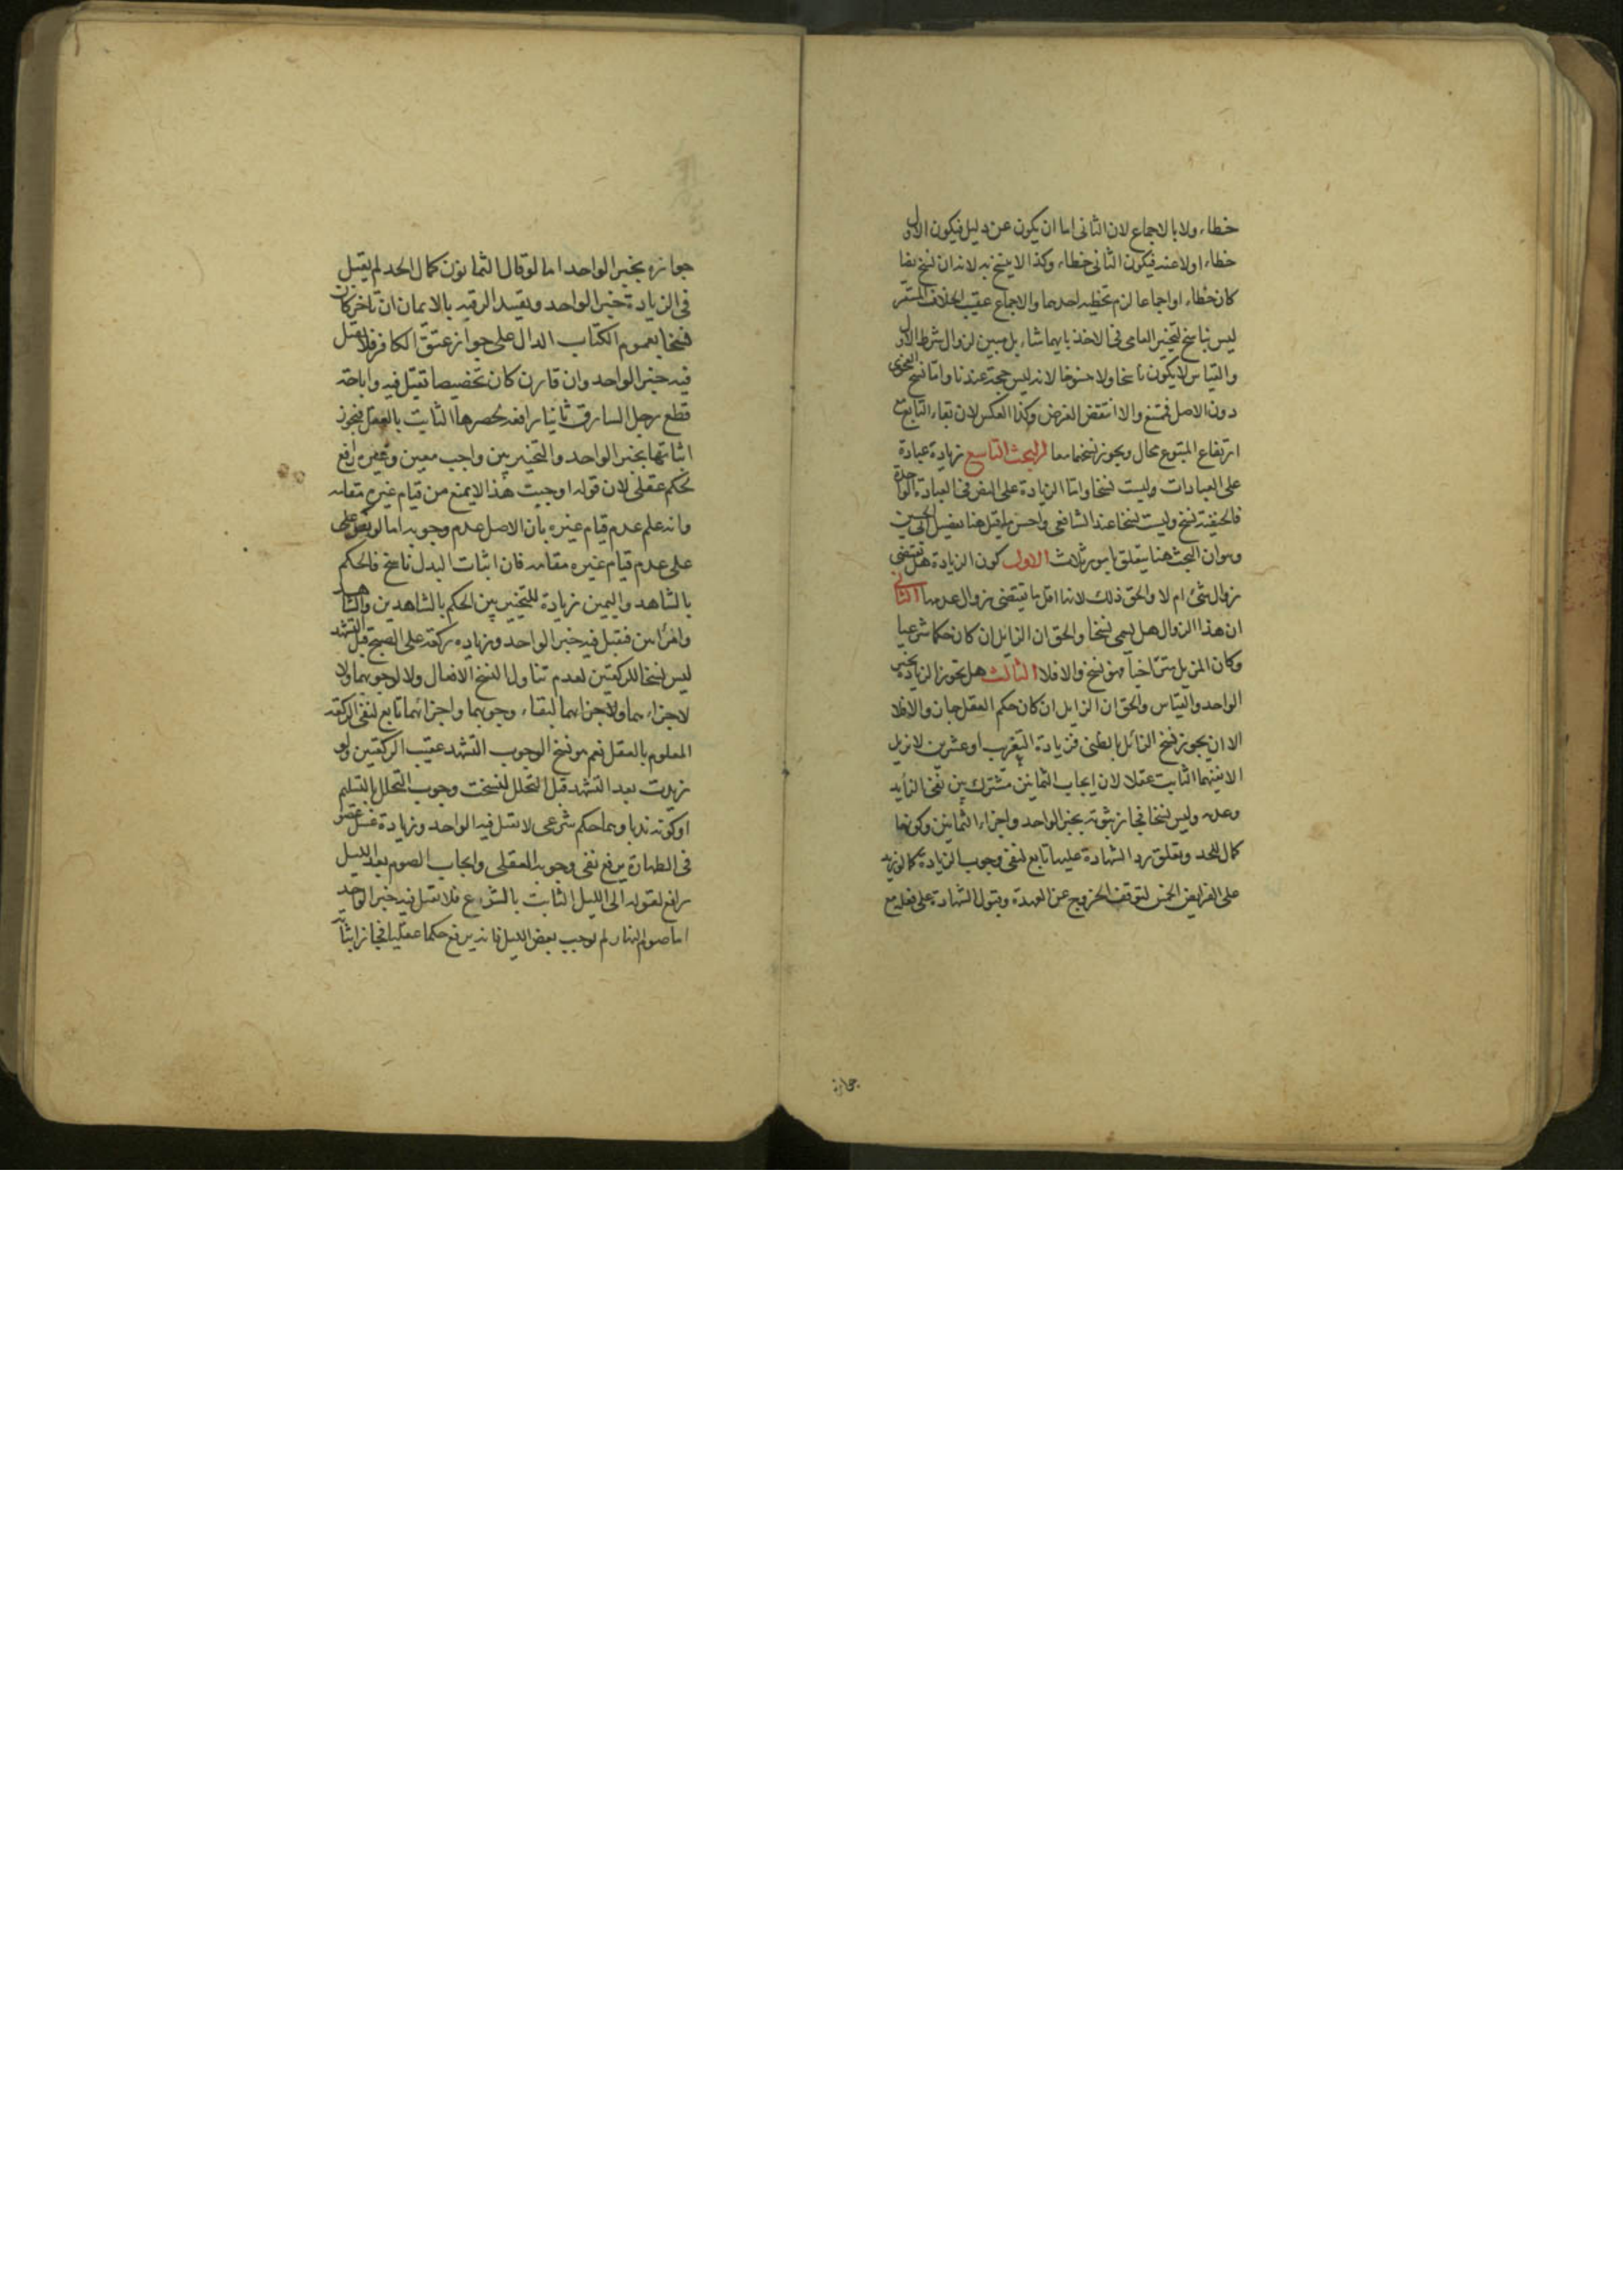 خطاء ولا بالاجماع لان الثانى اما ان يكون عن دليل فيكون الاول
خطاء اولا عنه فيكون الثانى خطاء وكذا لا ينسخ به لانه ان نسخ نصا
كان خطاء او اجماعا لزم تخطيه احدهما والاجماع عقيب الخلاف المستقر
ليس بناسخ لتخيير العامى فى الاخذ بايهما شاء بل مبين لزوال شرط الاول
والقياس لا يكون ناسخا ولا منسوخا لانه ليس حجة عندنا واما نسخ الفحوى
دون الاصل فممتنع والا انتقض الغرض وكذا العكس لان بقاء التابع مع
ارتفاع المتبوع محال ويجوز نسخهما معا البحث التاسع زيادة عبادة
على العبادات وليست نسخا واما الزيادة على النص فى العبادة الواحدة
فالحنفية نسخ وليست نسخا عند الشافعى واحسن ما قيل هنا تفصيل ابى الحسين
وهو ان البحث هنا يتعلق بامور ثلاث الاول كون الزيادة هل تقتضى
زوال شئ ام لا والحق ذلك لانها اقل ما تقتضى زوال عدمها الثانى
ان هذا الزوال هل يسمى نسخا والحق ان الزايل ان كان حكما شرعيا
وكان المزيل متراخيا فهو نسخ والا فلا الثالث هل تجوز الزيادة بخبر
الواحد والقياس والحق ان الزايل ان كان حكم العقل جاز والا فلا
الا ان يجوز نسخ الزائل بالظنى فزيادة التغريب او عشرين لا يزيل
الا نفيهما الثابت عقلا لان ايجاب الثمانين مشترك بين نفى الزايد
وعدمه وليس نسخا فجاز ثبوته بخبر الواحد واجزاء الثمانين وكونها
كمال الحد وتعلق رد الشهادة عليها تابع لنفى وجوب الزيادة كما لو زيد
على الفرايض الخمس لتوقف الخروج عن العهدة وقبول الشهادة على فعله مع
جوازه
جوازه بخبر الواحد اما لو قال الثمانون كمال الحد لم يقبل
فى الزيادة خبر الواحد وتقييد الرقبه بالايمان ان تاخر كان
نسخا لعموم الكتاب الدال على جواز عتق الكافر فلا يقبل
فيه خبر الواحد وان قارن كان تخصيصا تقبل فيه واباحة
قطع رجل السارق ثانيا رافعه لحصرها الثابت بالعقل فيجوز
اثباتها بخبر الواحد والتخيير بين واجب معين وغيره رافع
لحكم عقلى لان قوله اوجبت هذا لا يمنع من قيام غيره مقامه
وانه علم عدم قيام غيره بان الاصل عدم وجوبه اما لو نص على
على عدم قيام غيره مقامه فان اثبات البدل ناسخ فالحكم
بالشاهد واليمين زيادة للتخيير بين الحكم بالشاهدين والشاهد
وامراتين فتقبل فيه خبر الواحد وزيادة ركعة على الصبح قبل التشهد
ليس نسخا للركعتين لعدم تناول النسخ الافعال ولا لوجوبهما ولا
لاجزاءهما ولاجزائهما لبقاء وجوبهما واجزائهما تابع لنفى الركعة
المعلوم بالعقل نعم هو نسخ الوجوب التشهد عقيب الركعتين ولو
زيدت بعد التشهد قبل التحلل لنسخت وجوب التحلل بالتسليم
او كونه ندبا وهما حكم شرعى لا تقبل فيه الواحد وزيادة غسل عضو
فى الطهارة يرفع نفى وجوبه العقلى وايجاب الصوم بعد الليل
رافع لقوله الى الليل الثابت بالشرع فلا تقبل فيه خبر الواحد
اما صوم النهار لم يوجب بعض الليل فانه يرفع حكما عقليا فجاز اثباته